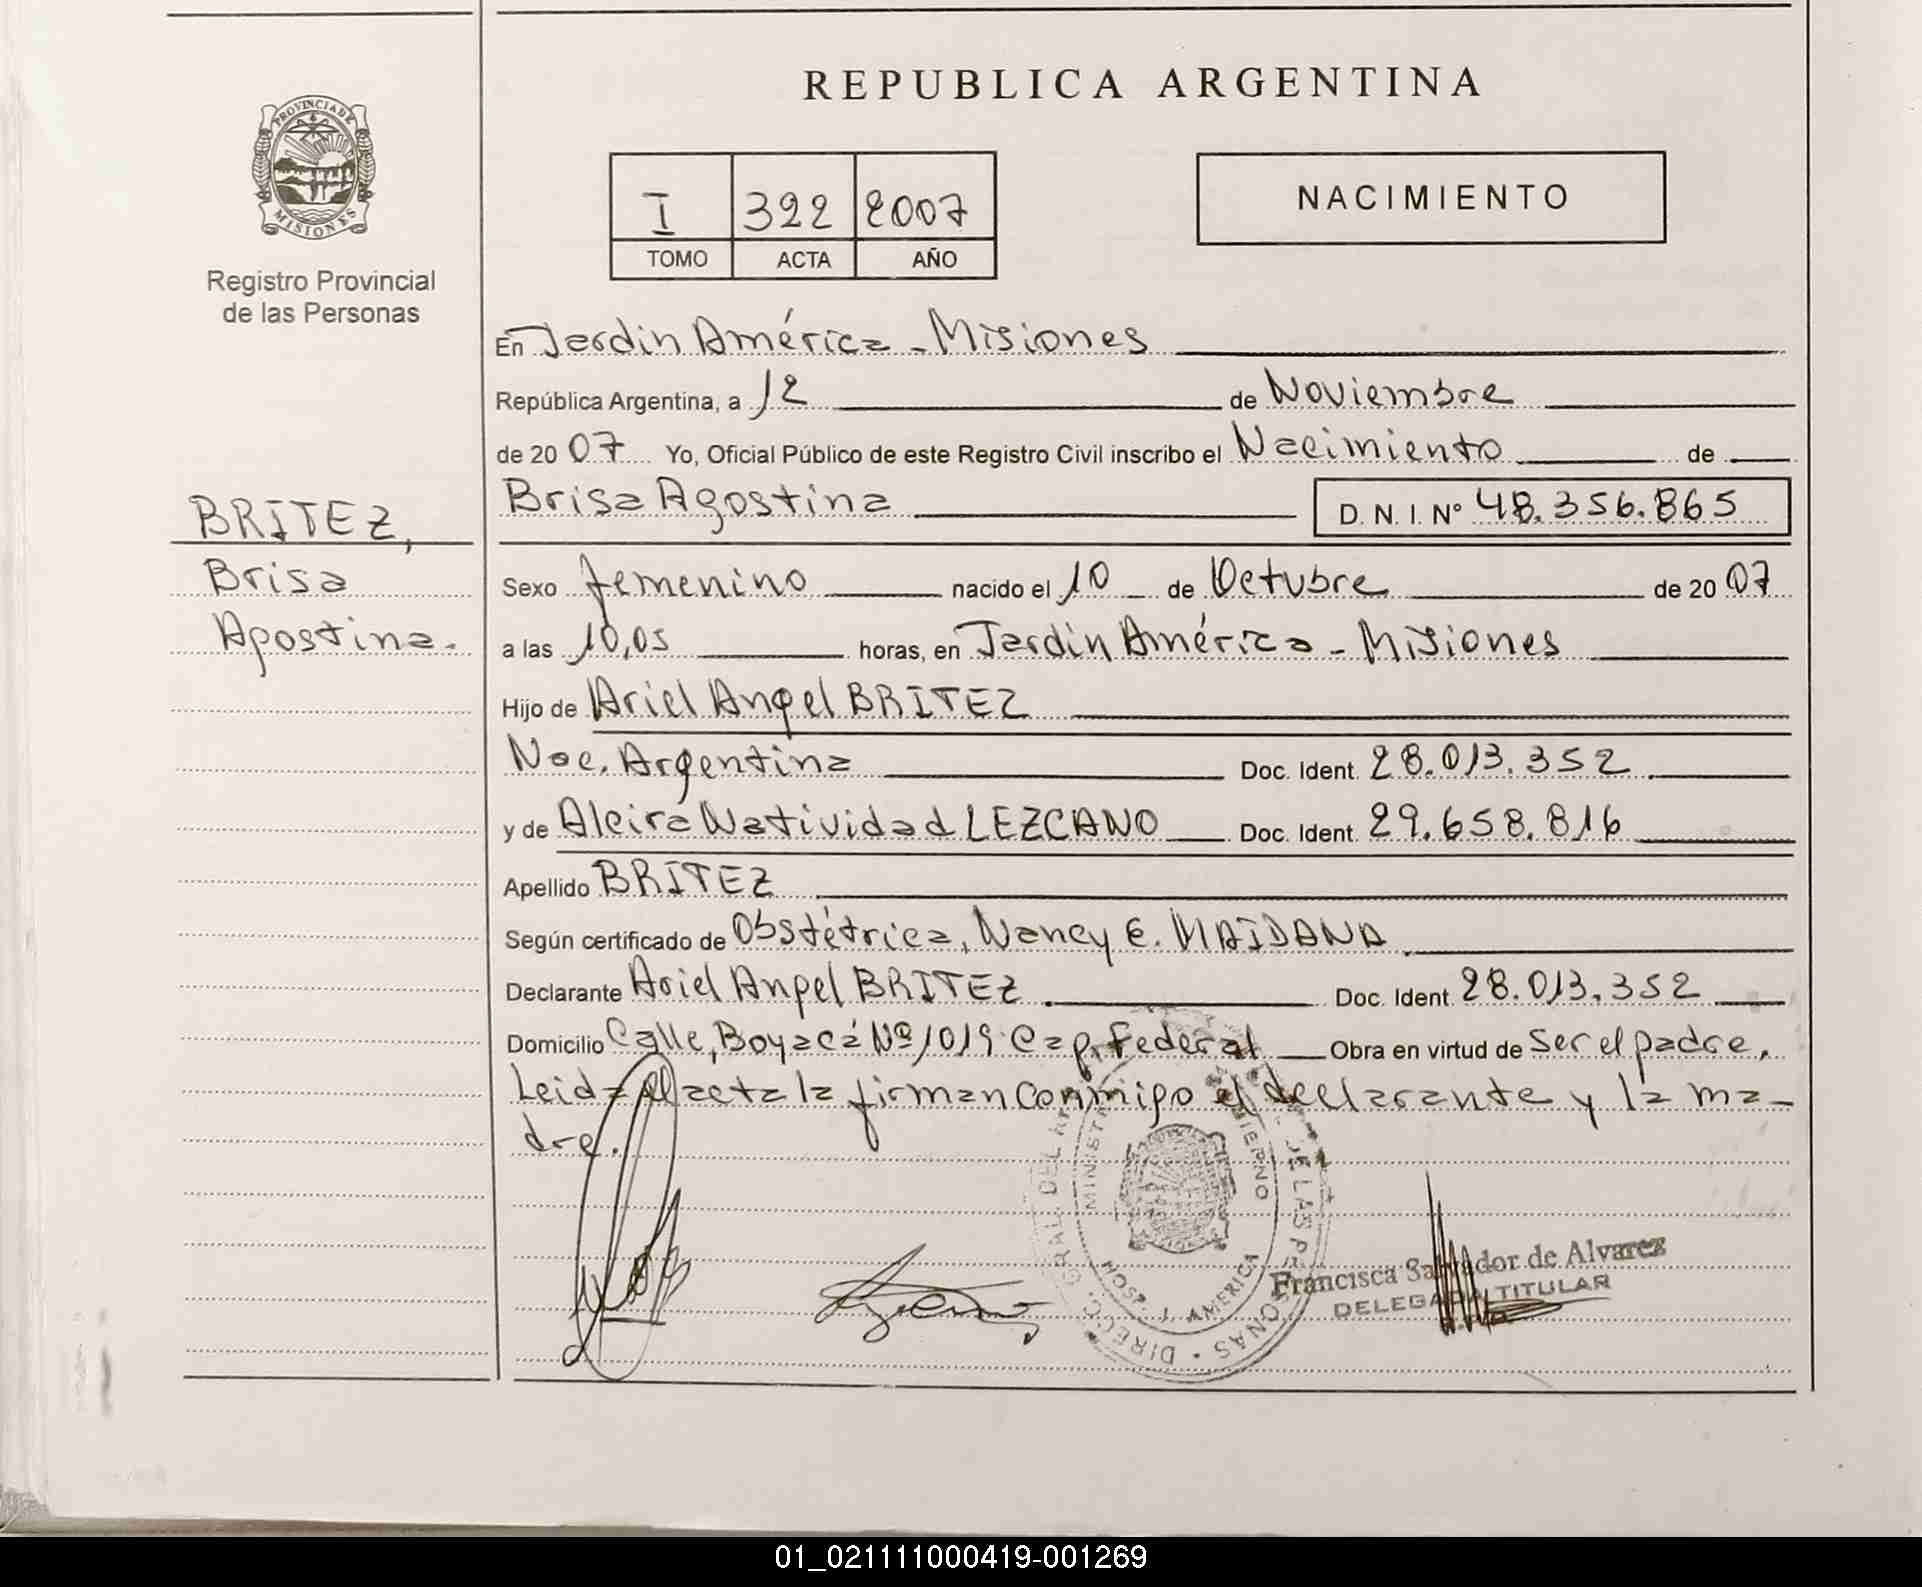 REPUBLICA ARGENTINA
PROVINCIA DE
MISIONES
Registro Provincial
de las Personas
I 322 2007
TOMO ACTA AÑO
NACIMIENTO
En Jardin América - Misiones
República Argentina, a 12 de Noviembre
de 20 07 Yo, Oficial Público de este Registro Civil inscribo el Nacimiento de
BRITEZ,
Brisa
Agostina.
Brisa Agostina D. N. I. Nº 48.356.865
Sexo femenino nacido el 10 de Octubre de 20 07
a las 10,05 horas, en Jardin América - Misiones
Hijo de Ariel Angel BRITEZ
Nac. Argentina Doc. Ident. 28.013.352
y de Alcira Natividad LEZCANO Doc. Ident. 29.658.816
Apellido BRITEZ
Según certificado de Obstétrica, Nancy E. MAIDANA
Declarante Ariel Angel BRITEZ Doc. Ident. 28.013.352
Domicilio Calle, Boyacá Nº 1019 Cap. Federal Obra en virtud de Ser el padre.
Leida el acta la firman conmigo el declarante y la ma-
dre.
DE LAS PERSONAS • DIRECC. GRAL. DEL
AMERICA
Francisca Salvador de Alvarez
DELEGADA TITULAR
01_021111000419-001269